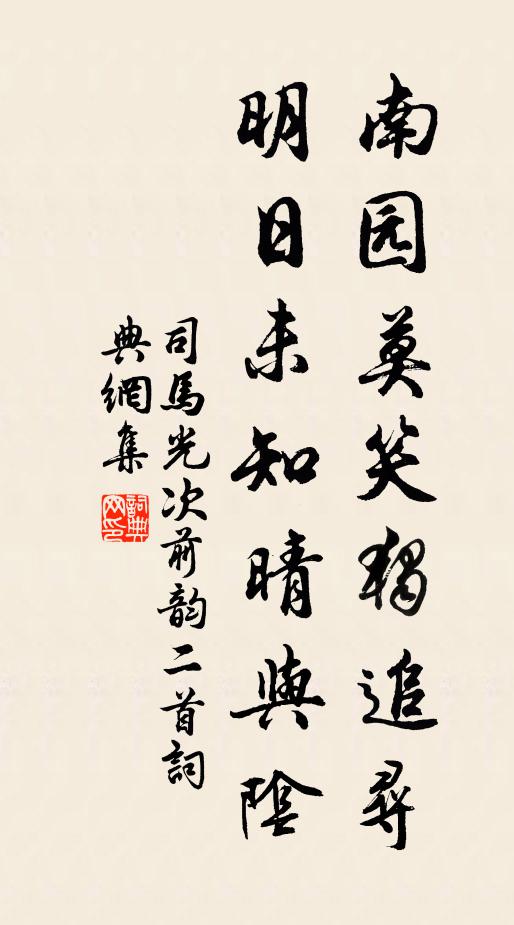 南园莫笑獨追尋
明日未知晴與陰
司馬光次前韵二首詞
典網集
詞典
网印